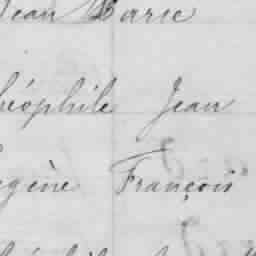 Jean Marie
héophile Jean
gène François